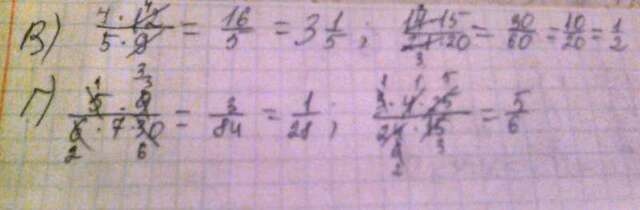 В) 4·12/5·9 = 16/5 = 3 1/5 ; 14·15/21·20 = 30/60 = 10/20 = 1/2
Г) 5·9/6·7·30 = 3/84 = 1/28 ; 3·4·25/24·15 = 5/6